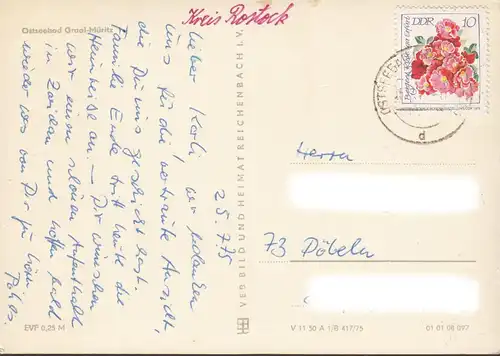 Kreis Rostock
Ostseebad Graal-Müritz
25.7.75
Lieber Karli, wir bedanken
uns für die vertraute Ansicht,
die Du uns geschickt hast.
Familie Ende tritt heute die
Heimreise an. – Dir wünschen
wir einen schönen Aufenthalt
in und hoffen bald
wieder was von Dir zu hören
EVP 0,25 M
VEB BILD UND HEIMAT REICHENBACH I. V.
DDR 10
OSTSEEBAD
d
Herrn
73 Döbeln
V 11 50 A 1/B 417/75
01 01 08 097